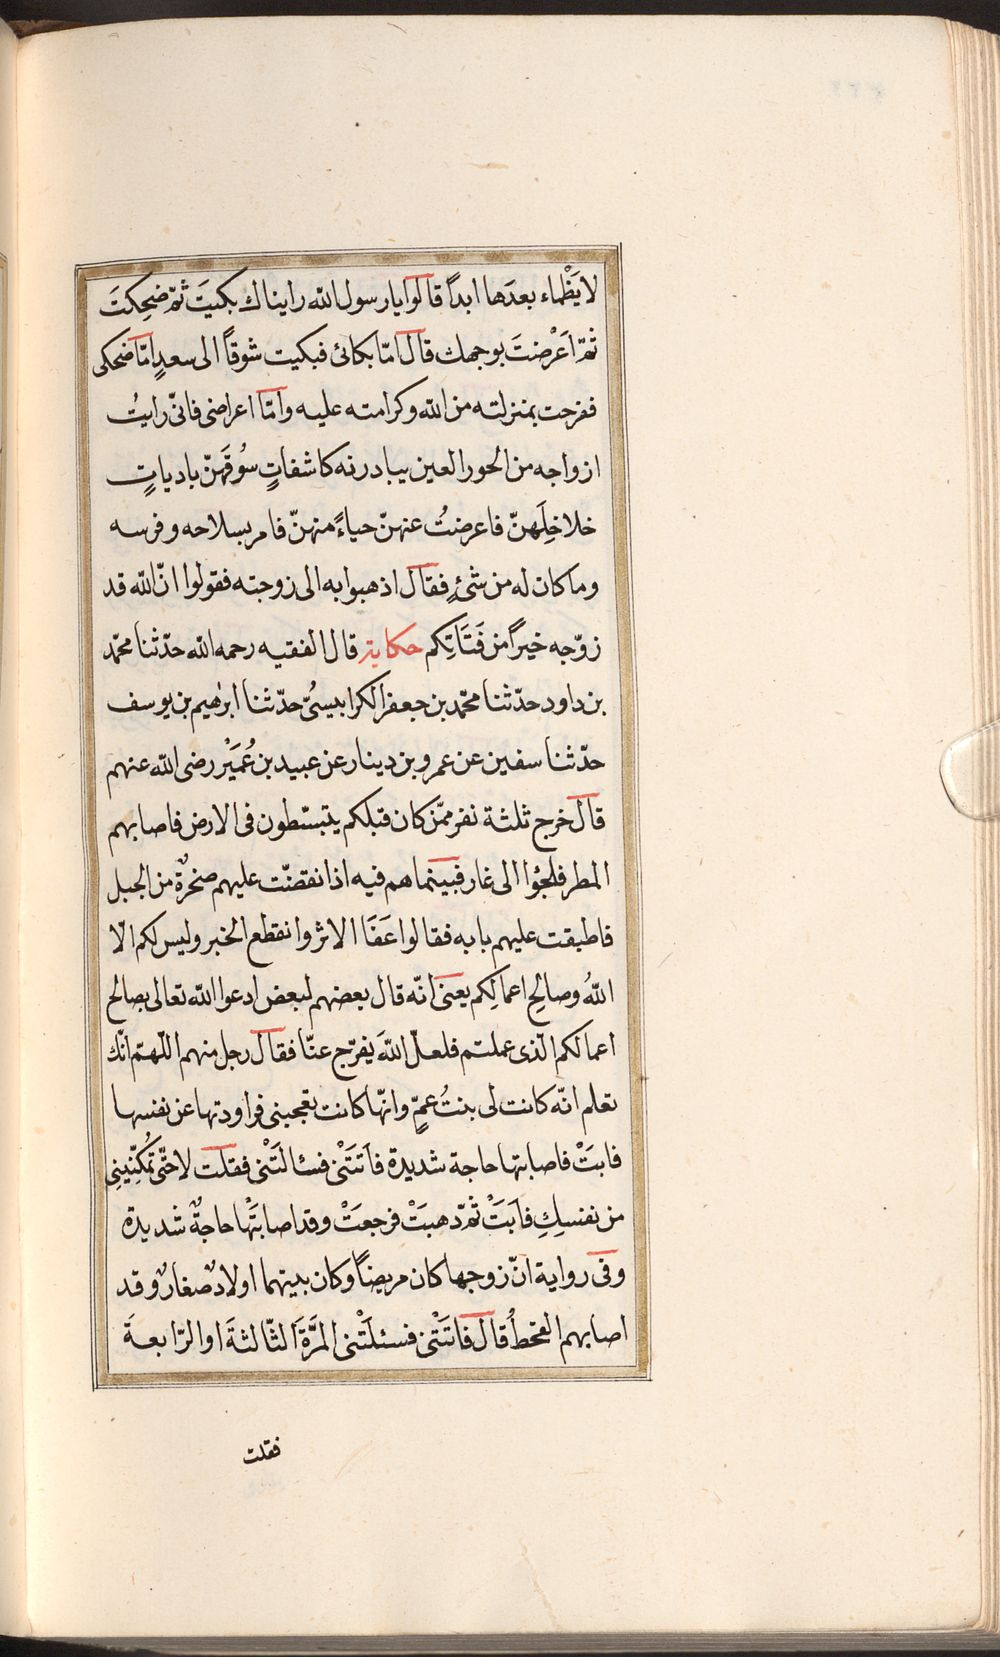 لا يَظْماء بعدَها ابداً قالوا يا رسول الله رايناك بكيتَ ثمّ ضحِكتَ
ثمّ اَعْرضتَ بوجهك قال امّا بكائ فبكيت شوقاً الى سعدٍ امّا ضحكى
ففرحت بمنزلته من الله وكرامته عليه وامّا اعراضى فانّى رايتُ
ازواجه من الحور العين يبادرنه كاشفاتٍ سُوقَهنّ بادياتٍ
خلاخِلَهنّ فاعرضتُ عنهنّ حياءً منهنّ فامر بسلاحه وفرسه
وما كان له من شئٍ فقال اذهبوا به الى زوجته فقولوا انّ الله قد
زوّجه خيراً من فَتَاتِكم حكاية قال الفقيه رحمه الله حدّثنا محمّد
بن داود حدّثنا محمّد بن جعفر الكرابيسىُّ حدّثنا ابرٰهيم بن يوسف
حدّثنا سفين عن عمرو بن دينار عن عبيد بن عُمَيْر رضى الله عنهم
قال خرج ثلثة نفر ممّن كان قبلكم يتبسّطون فى الارض فاصابهم
المطر فلجُوا الى غار فبينما هم فيه اذا نقضّت عليهم صخرةٌ من الجبل
فاطبقت عليهم بابه فقالوا عَفَا الاثر وانقطع الخبر وليس لكم الّا
اللهُ وصالحِ اعمالِكم يعنى انّه قال بعضهم لبعض ادعوا الله تعالى بصالح
اعمالكم الّذى عملتم فلعلّ اللهَ يفرّج عنّا فقال رجل منهم اللّهمّ انّك
تعلم انّه كانت لى بنتُ عمٍّ وانّها كانت تعجبنى فراودتها عن نفسها
فابتْ فاصابتها حاجة شديدة فاَتَتْنى فسئالَتْنى فقلت لا حتّى تمُكّنِينى
من نفسكِ فاَبَتْ ثمّ ذهبَتْ فرجعَتْ وقد اصابَتْها حاجةٌ شديدة
وفى رواية انّ زوجها كان مريضاً وكان بينهما اولادٌ صغارٌ وقد
اصابهم القحطُ قال فاتَتْنى فسئلَتْنى المَرَّةَ الثّالثةَ او الرّابعةَ
فقلت